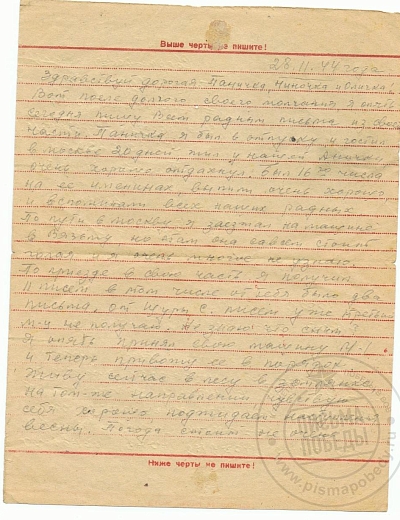 Выше черты не пишите!
28.11.44 года
Здравствуй дорогая Паничка, Ниночка и Оличка!
Вот после долгого своего молчания я опять
сегодня пишу Вам родным письма из своей
части. Паничка я был в отпуску и гостил
в москве 20 дней был у нашей
очень хорошо отдахнул. Был 16го числа
на ее именинах выпили очень хорошо,
и вспоминали всех наших родных.
По пути в москву я заезжал на машине
в Вязьму но там она совсем стоит
голая и я многие не узнаю
По приезде в свою часть я получил
11 писем в том числе от тебя было два
письма, от Шуры с писем уже третий
м-ц не получаю. Не знаю что с ним?
Я опять принял свою машину М-1
и теперь привожу ее в порядок.
Живу сейчас в лесу в землянке
на том-же направлении чувствую
себя хорошо поджидаем наступления
весны. Погода стоит не очень
Ниже черты не пишите!
ПИСЬМА ПОБЕДЫ
www.pismapobedy.ru